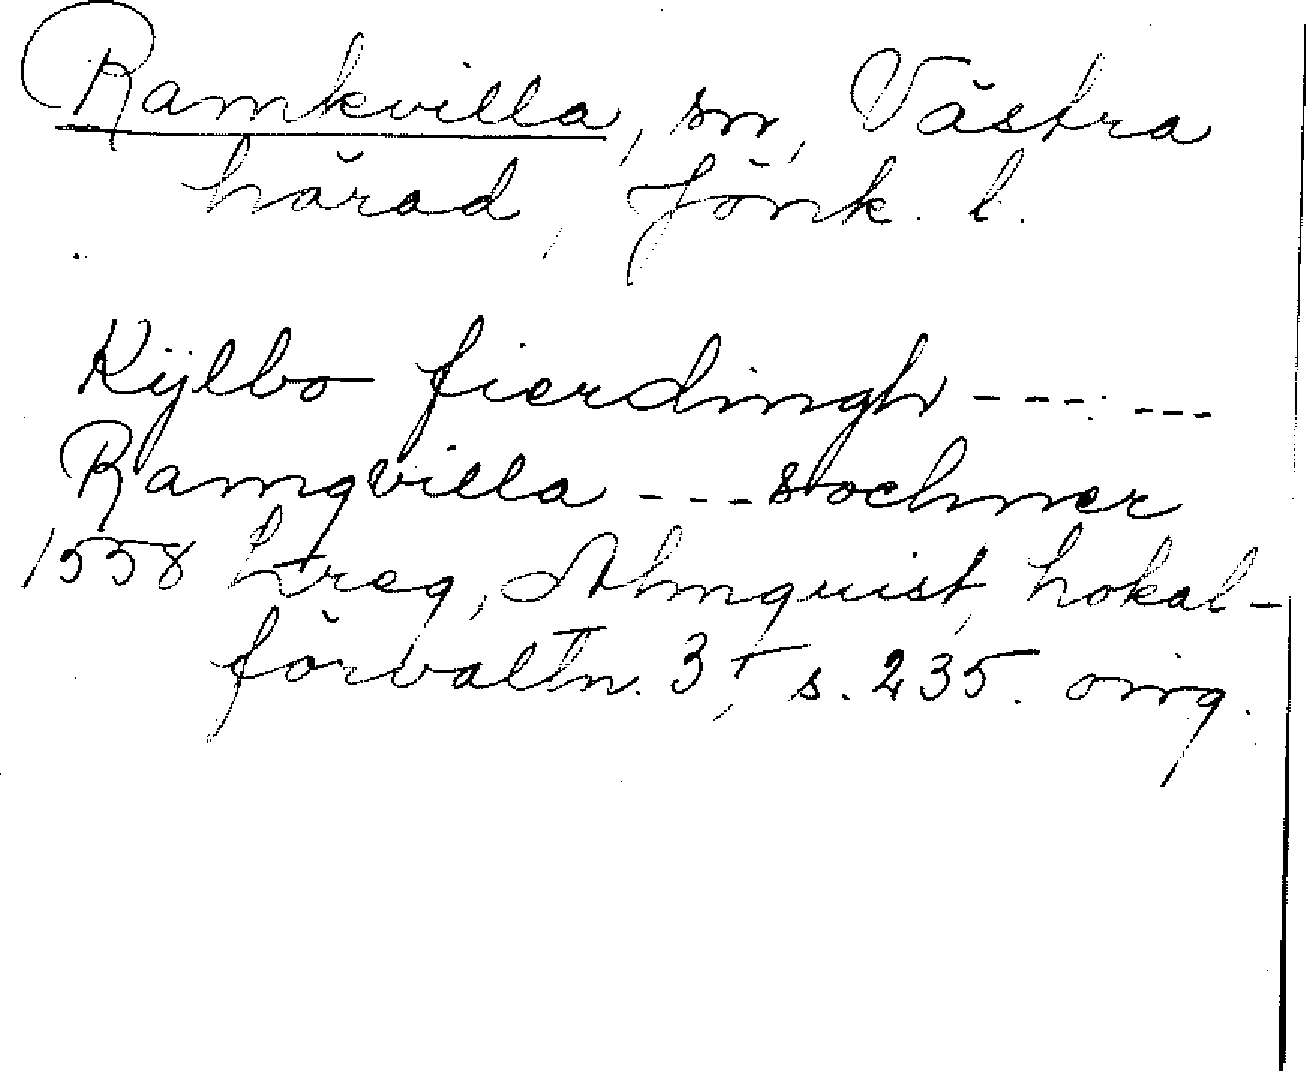 Ramkvilla, sn, Västra
härad, Jönk. l.
Kÿlbo fierdingh --- ---
Ramqvilla --- sochner
1558 Lreg, Almquist, Lokal-
förvaltn. 3, s. 235. orig.